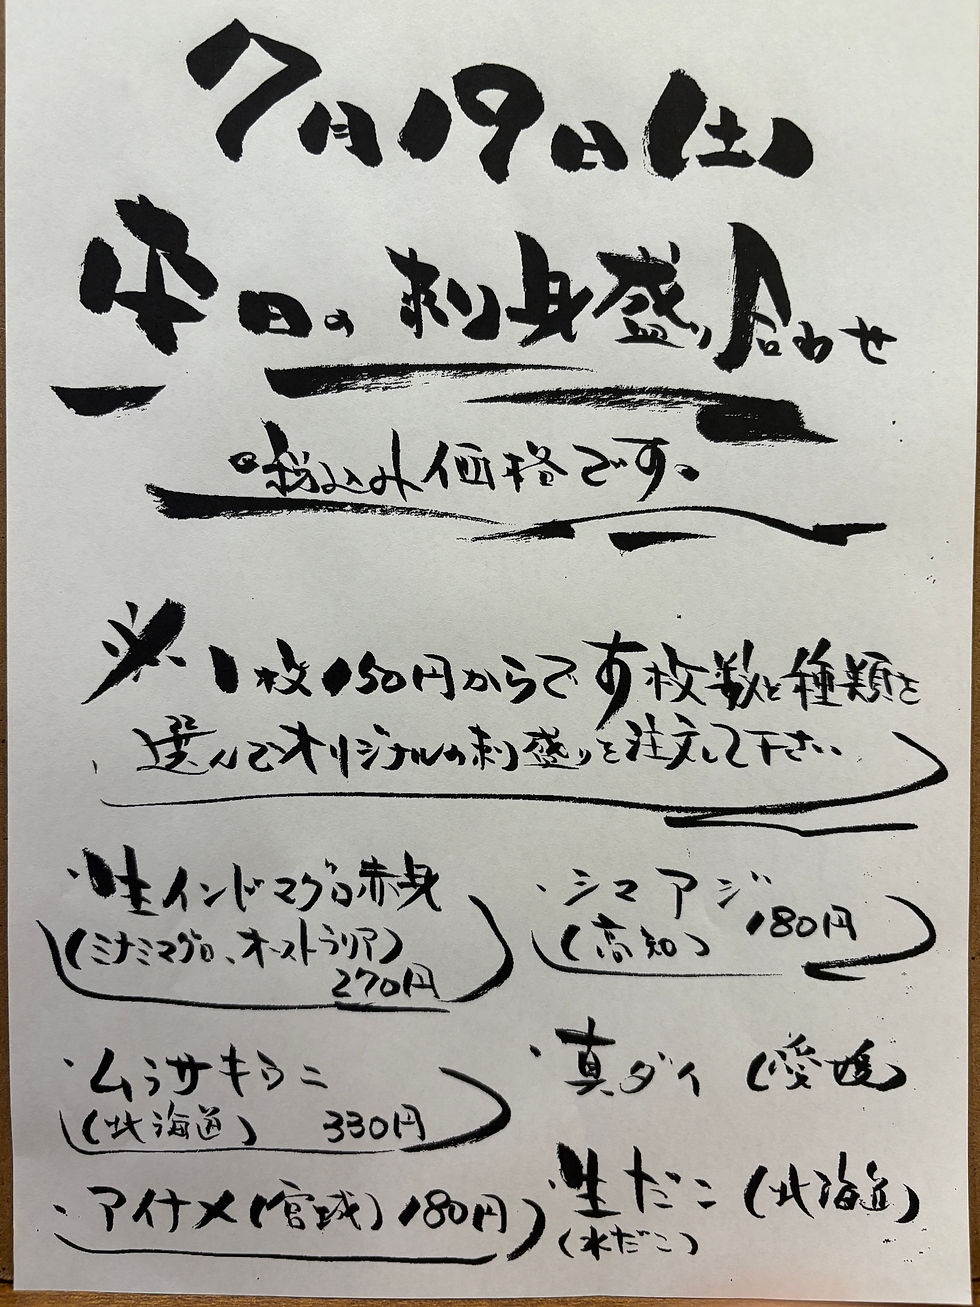 7月19日(土)
本日の刺身盛り合わせ
税込み価格です。
※1枚150円からです枚数と種類を
選んでオリジナルの刺盛りを注文して下さい
・生インドマグロ赤身
(ミナミマグロ、オーストラリア)
270円
・シマアジ
(高知) 180円
・ムラサキウニ
(北海道) 330円
・真ダイ (愛媛)
・アイナメ(宮城) 180円
・生だこ (北海道)
(水だこ)